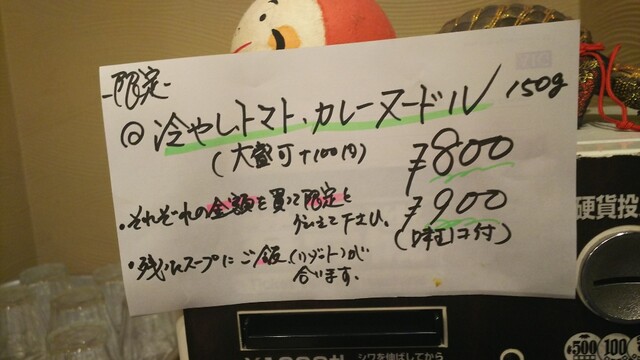 -限定-
◎冷やしトマト、カレーヌードル 150g
(大盛可+100円) ¥800
¥900
(味玉付)
・それぞれの金額を買って限定と
伝えて下さい。
・残ったスープにご飯(リゾット)が
合います。
硬貨投
¥1000札 シワを伸ばしてから
500 100